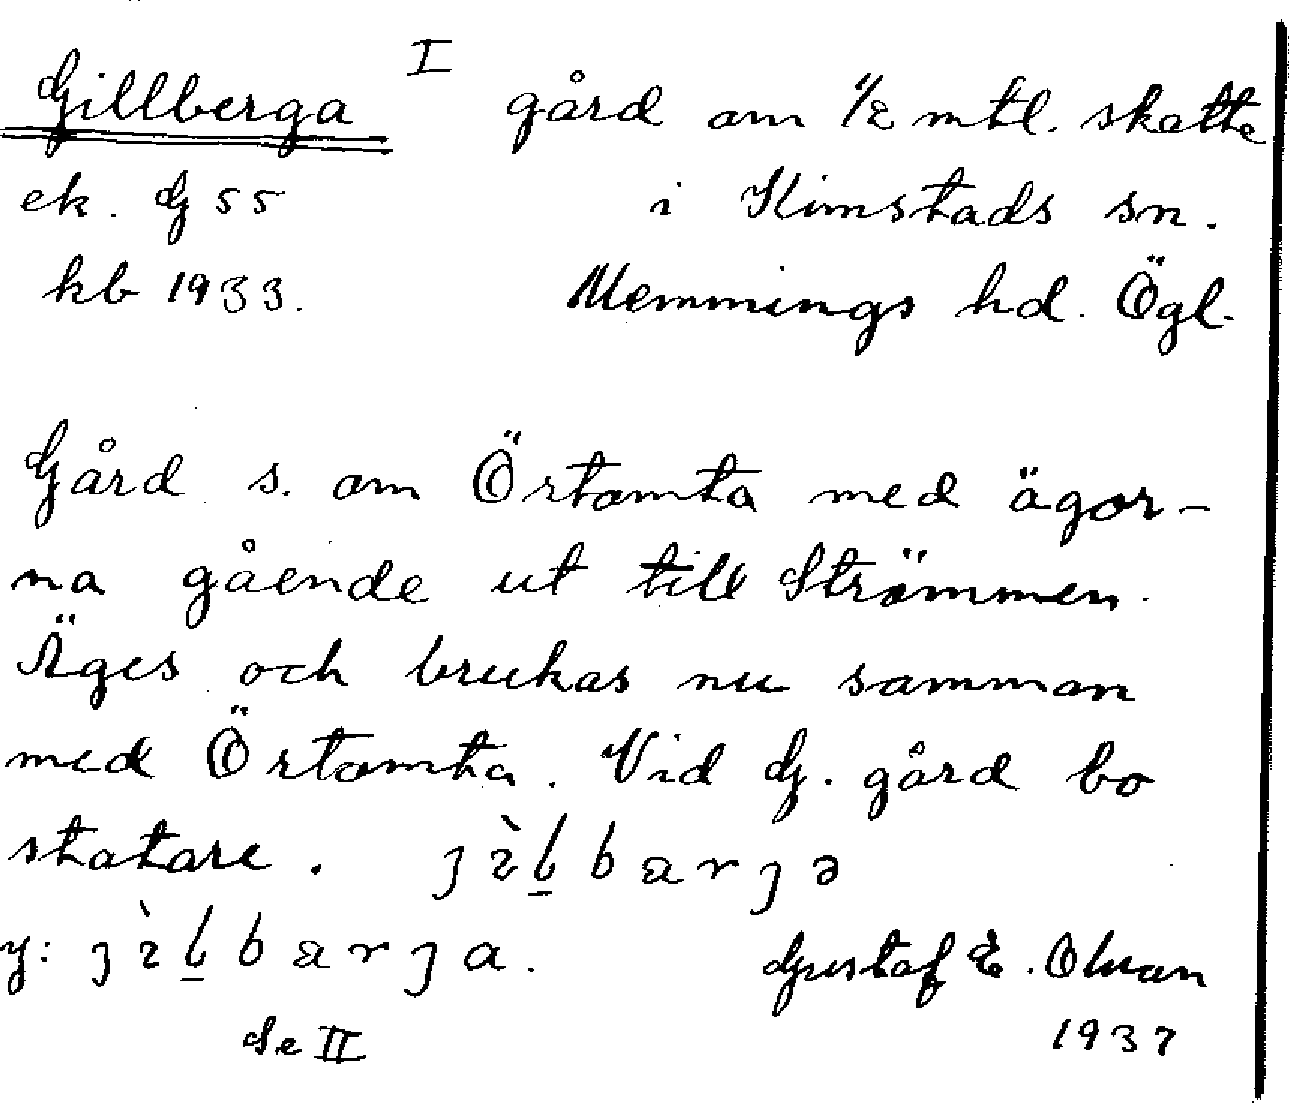 Gillberga I gård om 1/2 mtl. skatte
ek. G 55 i Kimstads sn.
kb 1933. Memmings hd. Ögl.
Gård s. om Örtomta med ägor-
na gående ut till Strömmen.
Äges och brukas nu samman
med Örtomta. Vid G. gård bo
statare.
y:
Gustaf E. Olsson
Se II 1937